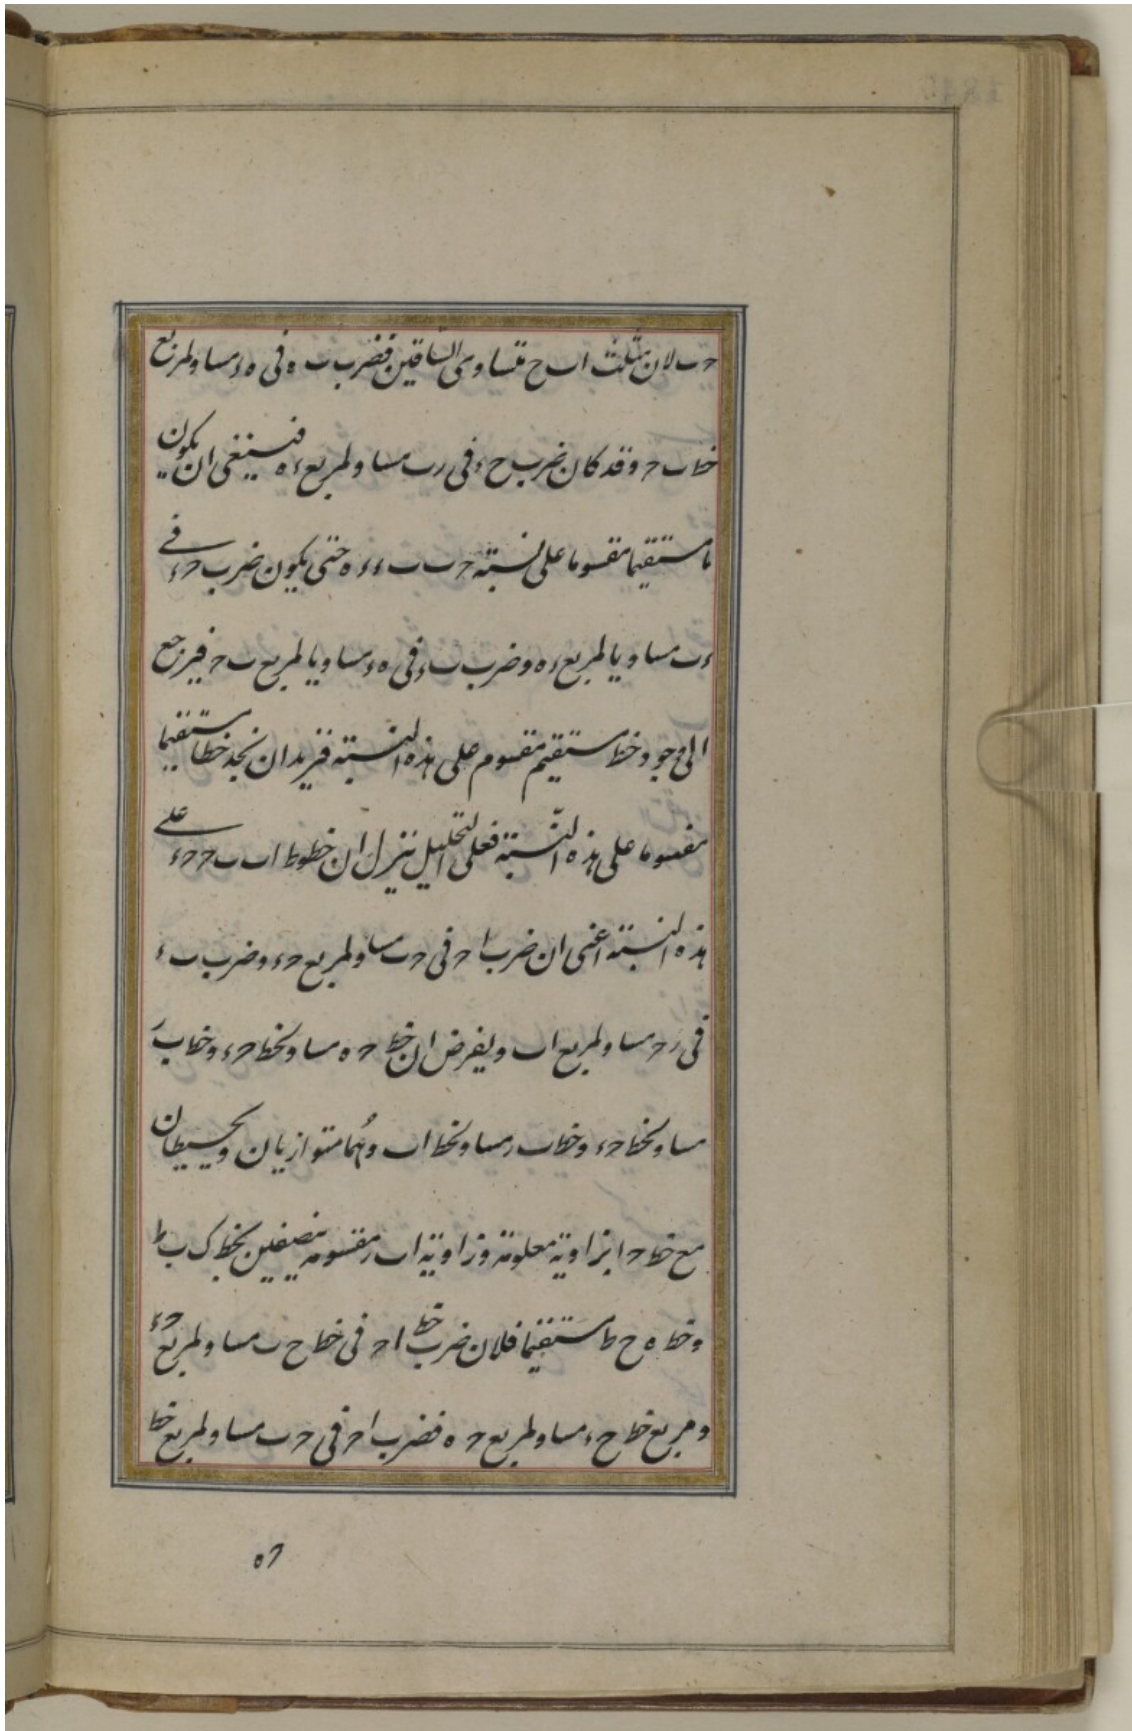 حـ ب لان مثلث ا ب ح متساوى الساقين فضرب ب ه فى ه ء مساو لمربع
خط ب حـ وقد كان ضرب ح ء فى ر ب مساو لمربع ء ه فينبغى ان يكون
مستقيما مقسوما على نسبة حـ ب ب ء ء ه حتى يكون ضرب حـ ء فى
ء ب مساويا لمربع ء ه وضرب ب ء فى ه ء مساويا لمربع ب حـ فيرجع
الى وجود خط مستقيم مقسوم على هذه النسبة فنريد ان نجد خطا مستقيما
مقسوما على هذه النسبة فعلى التحليل ننزل ان خطوط ا ب ب حـ حـ ء على
هذه النسبة اعنى ان ضرب ا حـ فى حـ ب مساو لمربع حـ ء وضرب ب ء
فى ر حـ مساو لمربع ا ب ويفرض ان خط حـ ه مساو لخط حـ ء وخط ب ر
مساو لخط حـ ء وخط ب ر مساو لخط ا ب وهُما متوازيان ويحيطان
مع خط حـ ا بزاوية معلومة وزاوية ا ب ر مقسومة بنصفين بخط ك ب ط
وخط ه ح ط مستقيما فلان ضرب خط ا حـ فى خط ح ب مساو لمربع حـ ء
ومربع خط ح ء مساو لمربع حـ ه فضرب ا حـ فى حـ ب مساو لمربع خط
حـ ه